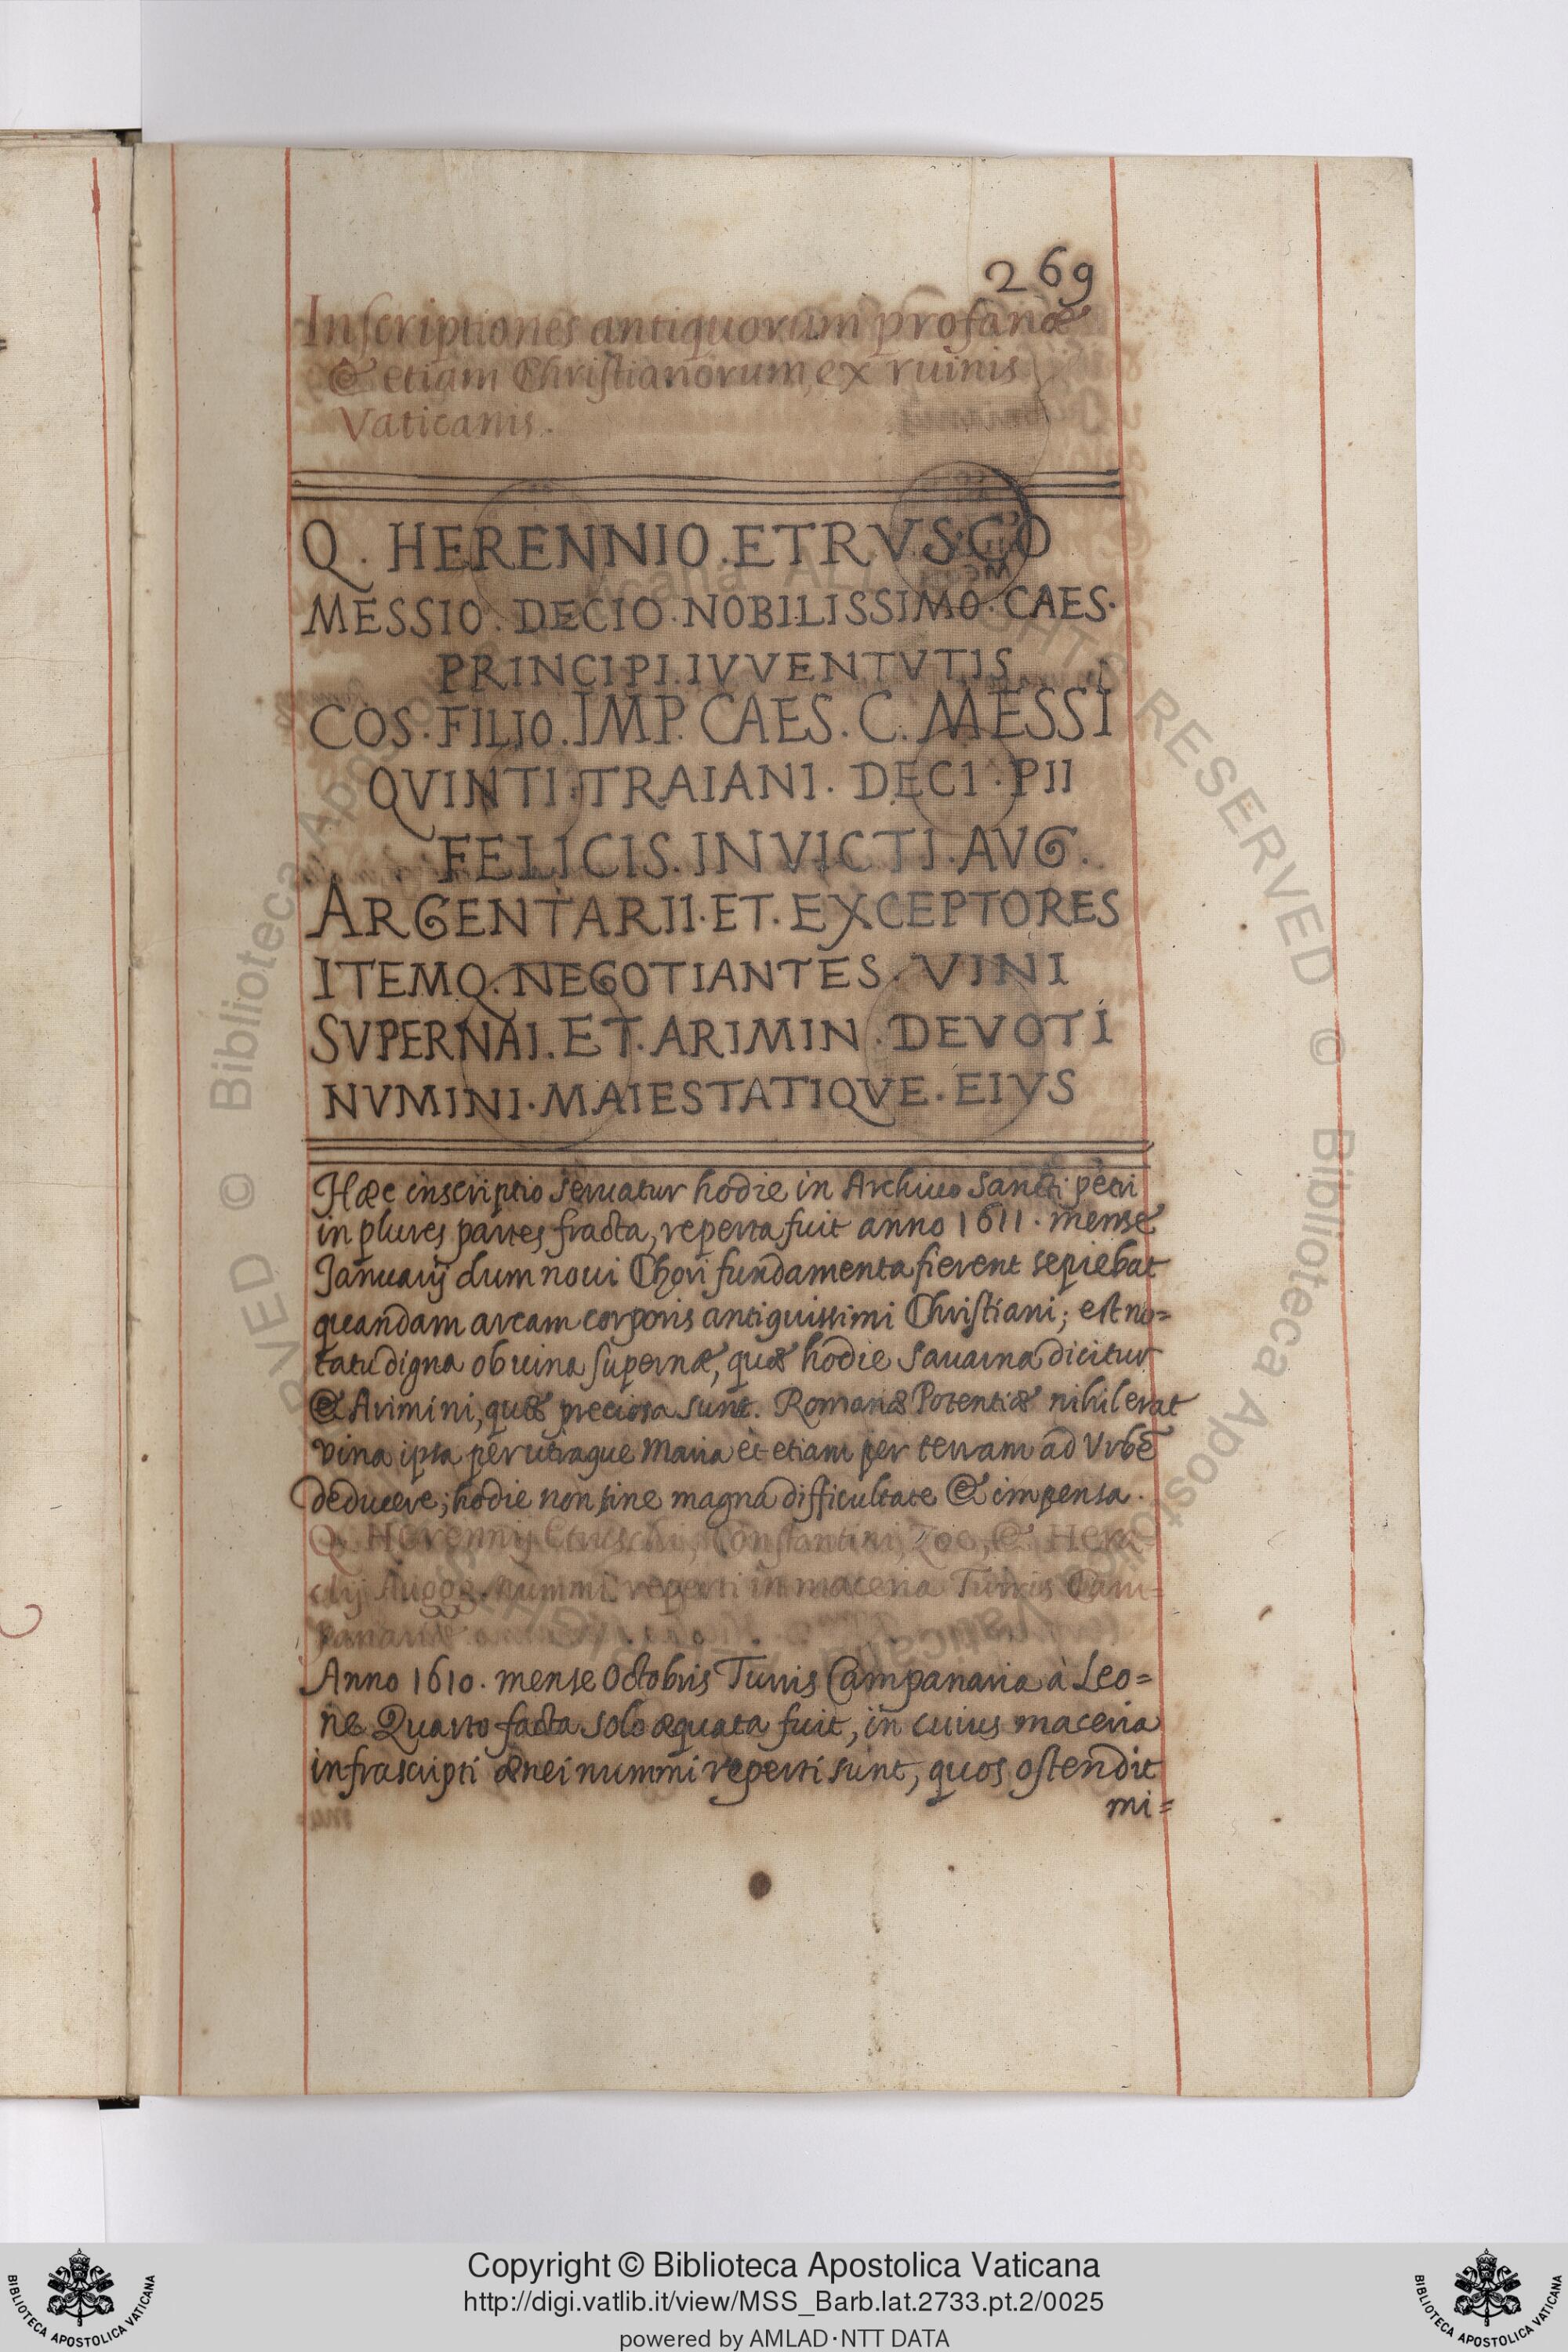 269
Inscriptiones antiquorum profanæ
& etiam Christianorum, ex ruinis
Vaticanis.
Q. HERENNIO. ETRVSCO
MESSIO. DECIO. NOBILISSIMO. CAES.
PRINCIPI. IVVENTVTIS
COS. FILIO. IMP. CAES. C. MESSI
QVINTI. TRAIANI. DECI. PII
FELICIS. INVICTI. AVG.
ARGENTARII. ET. EXCEPTORES
ITEMQ. NEGOTIANTES. VINI
SVPERNAI. ET. ARIMIN. DEVOTI
NVMINI. MAIESTATIQVE. EIVS
Hæc inscriptio seruatur hodie in Archiuo Sancti petri
in plures partes fracta, reperta fuit anno 1611. mense
Januarij dum noui Chori fundamenta fierent sepiebat
quandam arcam corporis antiquissimi Christiani; est no=
tatu digna ob uina supernæ, quæ hodie Sauarna dicitur
& Arimini, quæ preciosa sunt. Romanæ Potentiæ nihil erat
vina ipsa per utraque Maria et etiam per terram ad Vrbē
deducere; hodie non sine magna difficultate & impensa.
Q. Herennij Etrusci, Constantini, Zoe, & Hera=
clij Augg. nummi reperti in maceria Turris Cam=
panariæ
Anno 1610. mense Octobris Turris Campanaria à Leo=
ne Quarto facta solo æquata fuit, in cuius maceria
infrascripti ænei nummi reperti sunt, quos ostendit
mi=
Copyright © Biblioteca Apostolica Vaticana
http://digi.vatlib.it/view/MSS_Barb.lat.2733.pt.2/0025
powered by AMLAD·NTT DATA